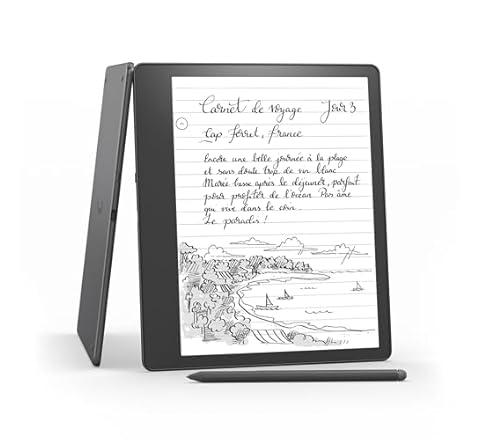 Carnet de voyage Jour 3
Cap Ferret, France
Encore une belle journée à la plage
et sans doute trop de vin blanc
Marée basse après le déjeuner, parfait
pour profiter de l'océan Pas âme
qui vive dans le coin.
Le paradis !